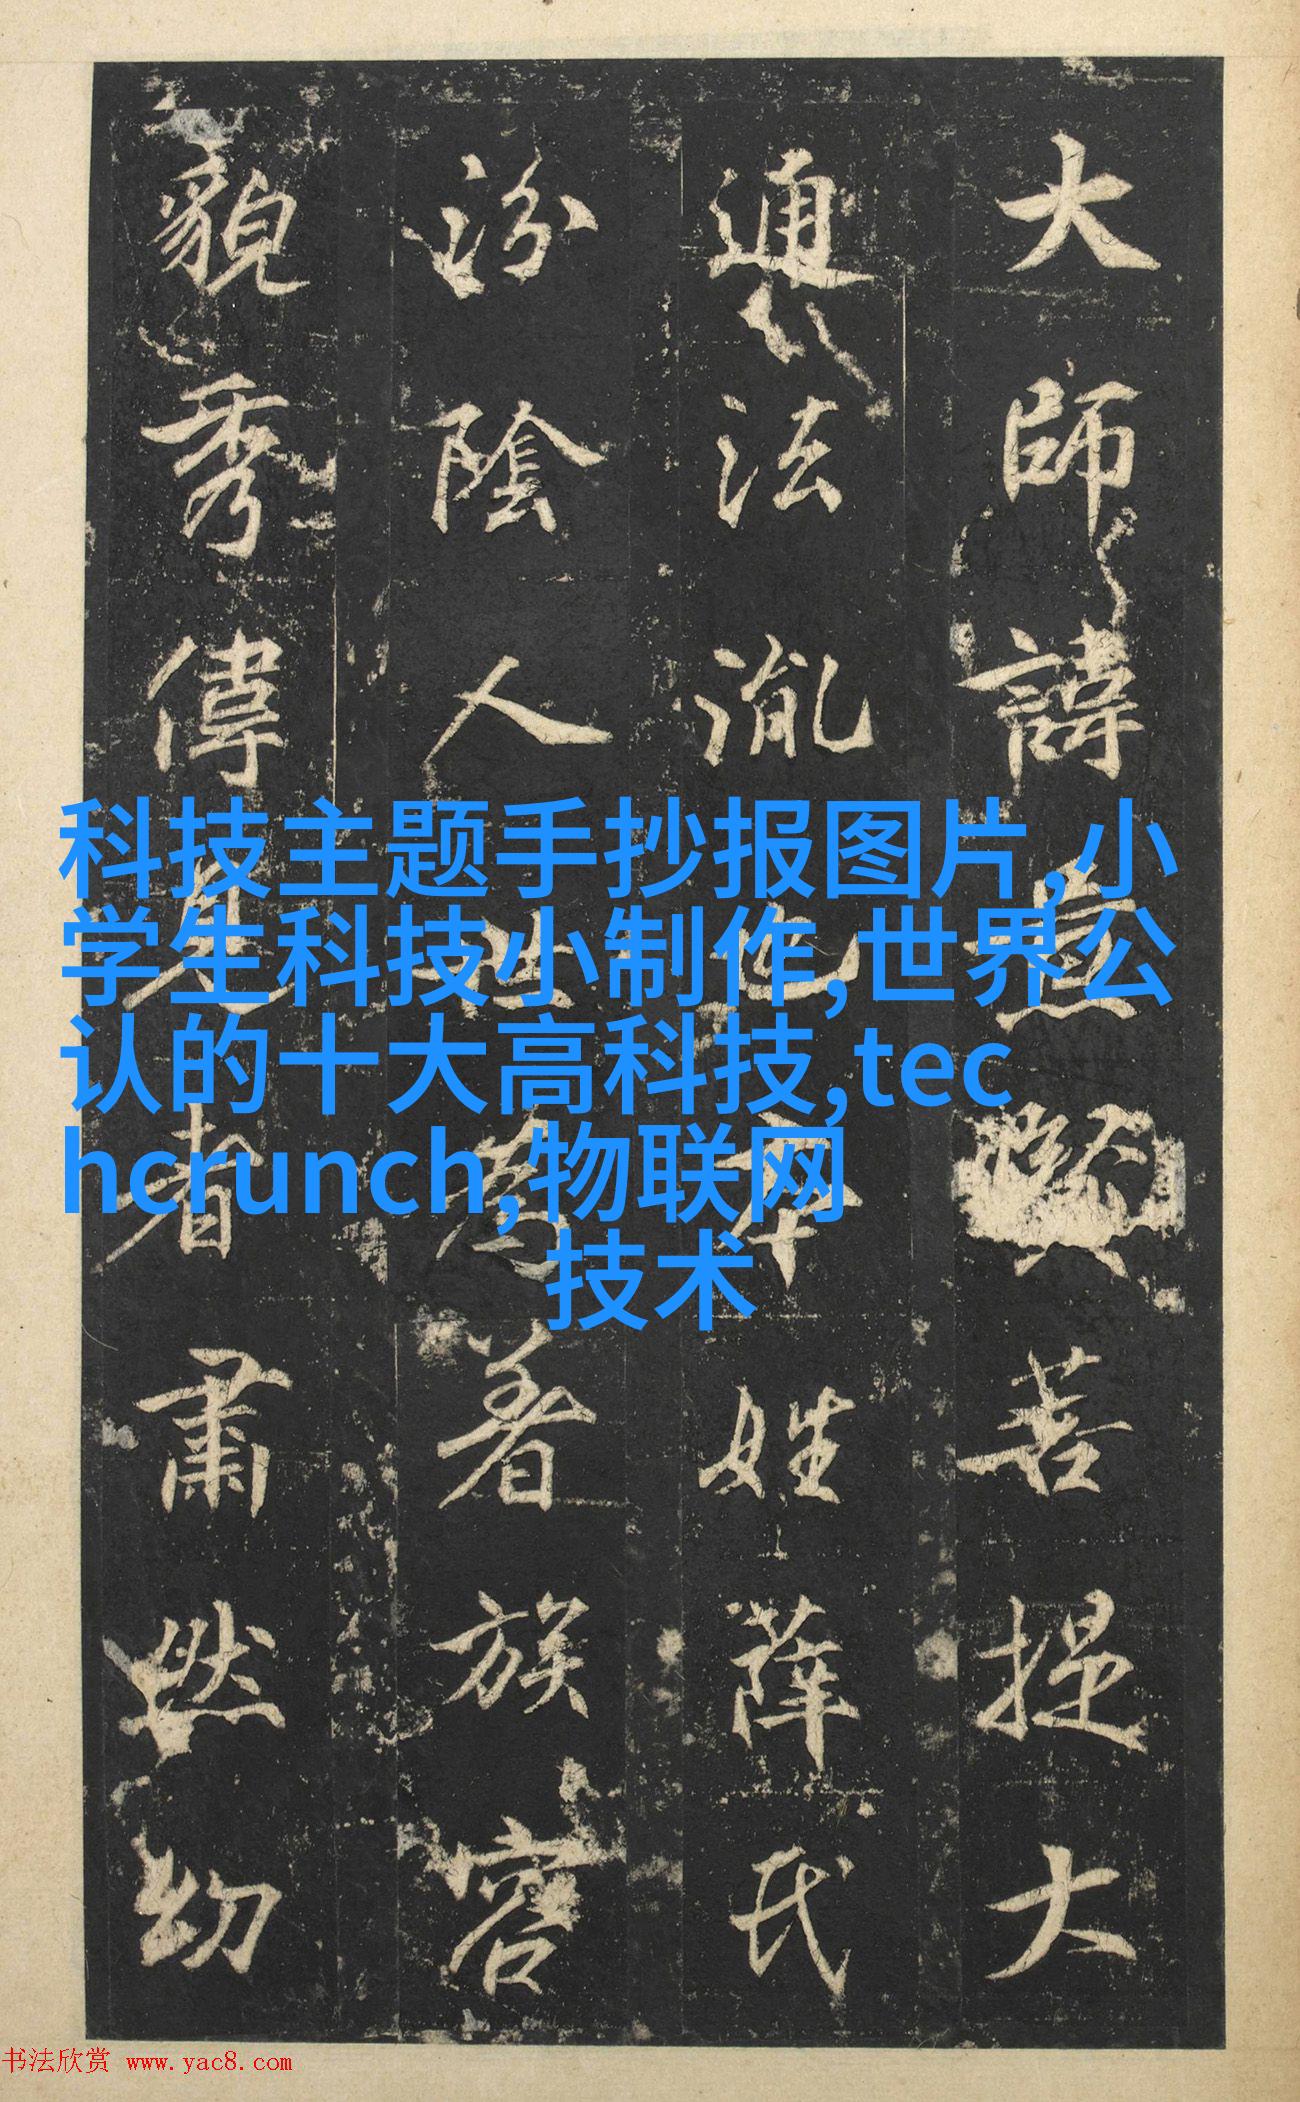 大師諱菩提大
通法胤也本姓薛氏
汾陰人世為著族容
貌秀偉見者肅然幼
科技主题手抄报图片,小
学生科技小制作,世界公
认的十大高科技,tec
hcrunch,物联网
技术
书法欣赏 www.yac8.com